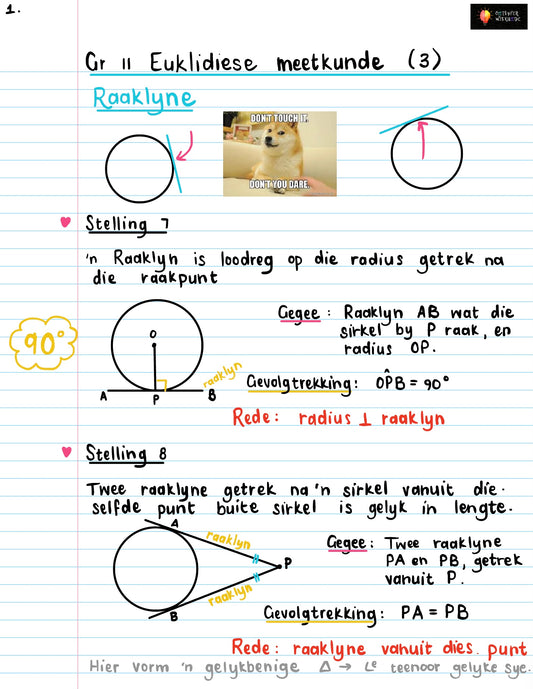 1.
Gr 11 Euklidiese meetkunde (3)
Raaklyne
DON'T TOUCH IT.
DON'T YOU DARE.
Stelling 7
'n Raaklyn is loodreg op die radius getrek na
die raakpunt
Gegee : Raaklyn AB wat die
sirkel by P raak, en
radius OP.
90°
O
A P B
raaklyn
Gevolgtrekking: OP̂B = 90°
Rede: radius ⊥ raaklyn
Stelling 8
Twee raaklyne getrek na 'n sirkel vanuit die-
selfde punt buite sirkel is gelyk in lengte.
A
raaklyn
P
raaklyn
B
Gegee : Twee raaklyne
PA en PB, getrek
vanuit P.
Gevolgtrekking: PA = PB
Rede: raaklyne vanuit dies. punt
Hier vorm 'n gelykbenige Δ → Lᵉ teenoor gelyke sye.